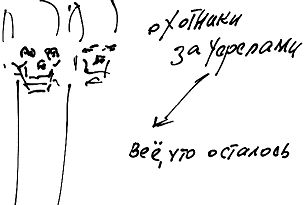 охотники
за черепами
всё, что осталось